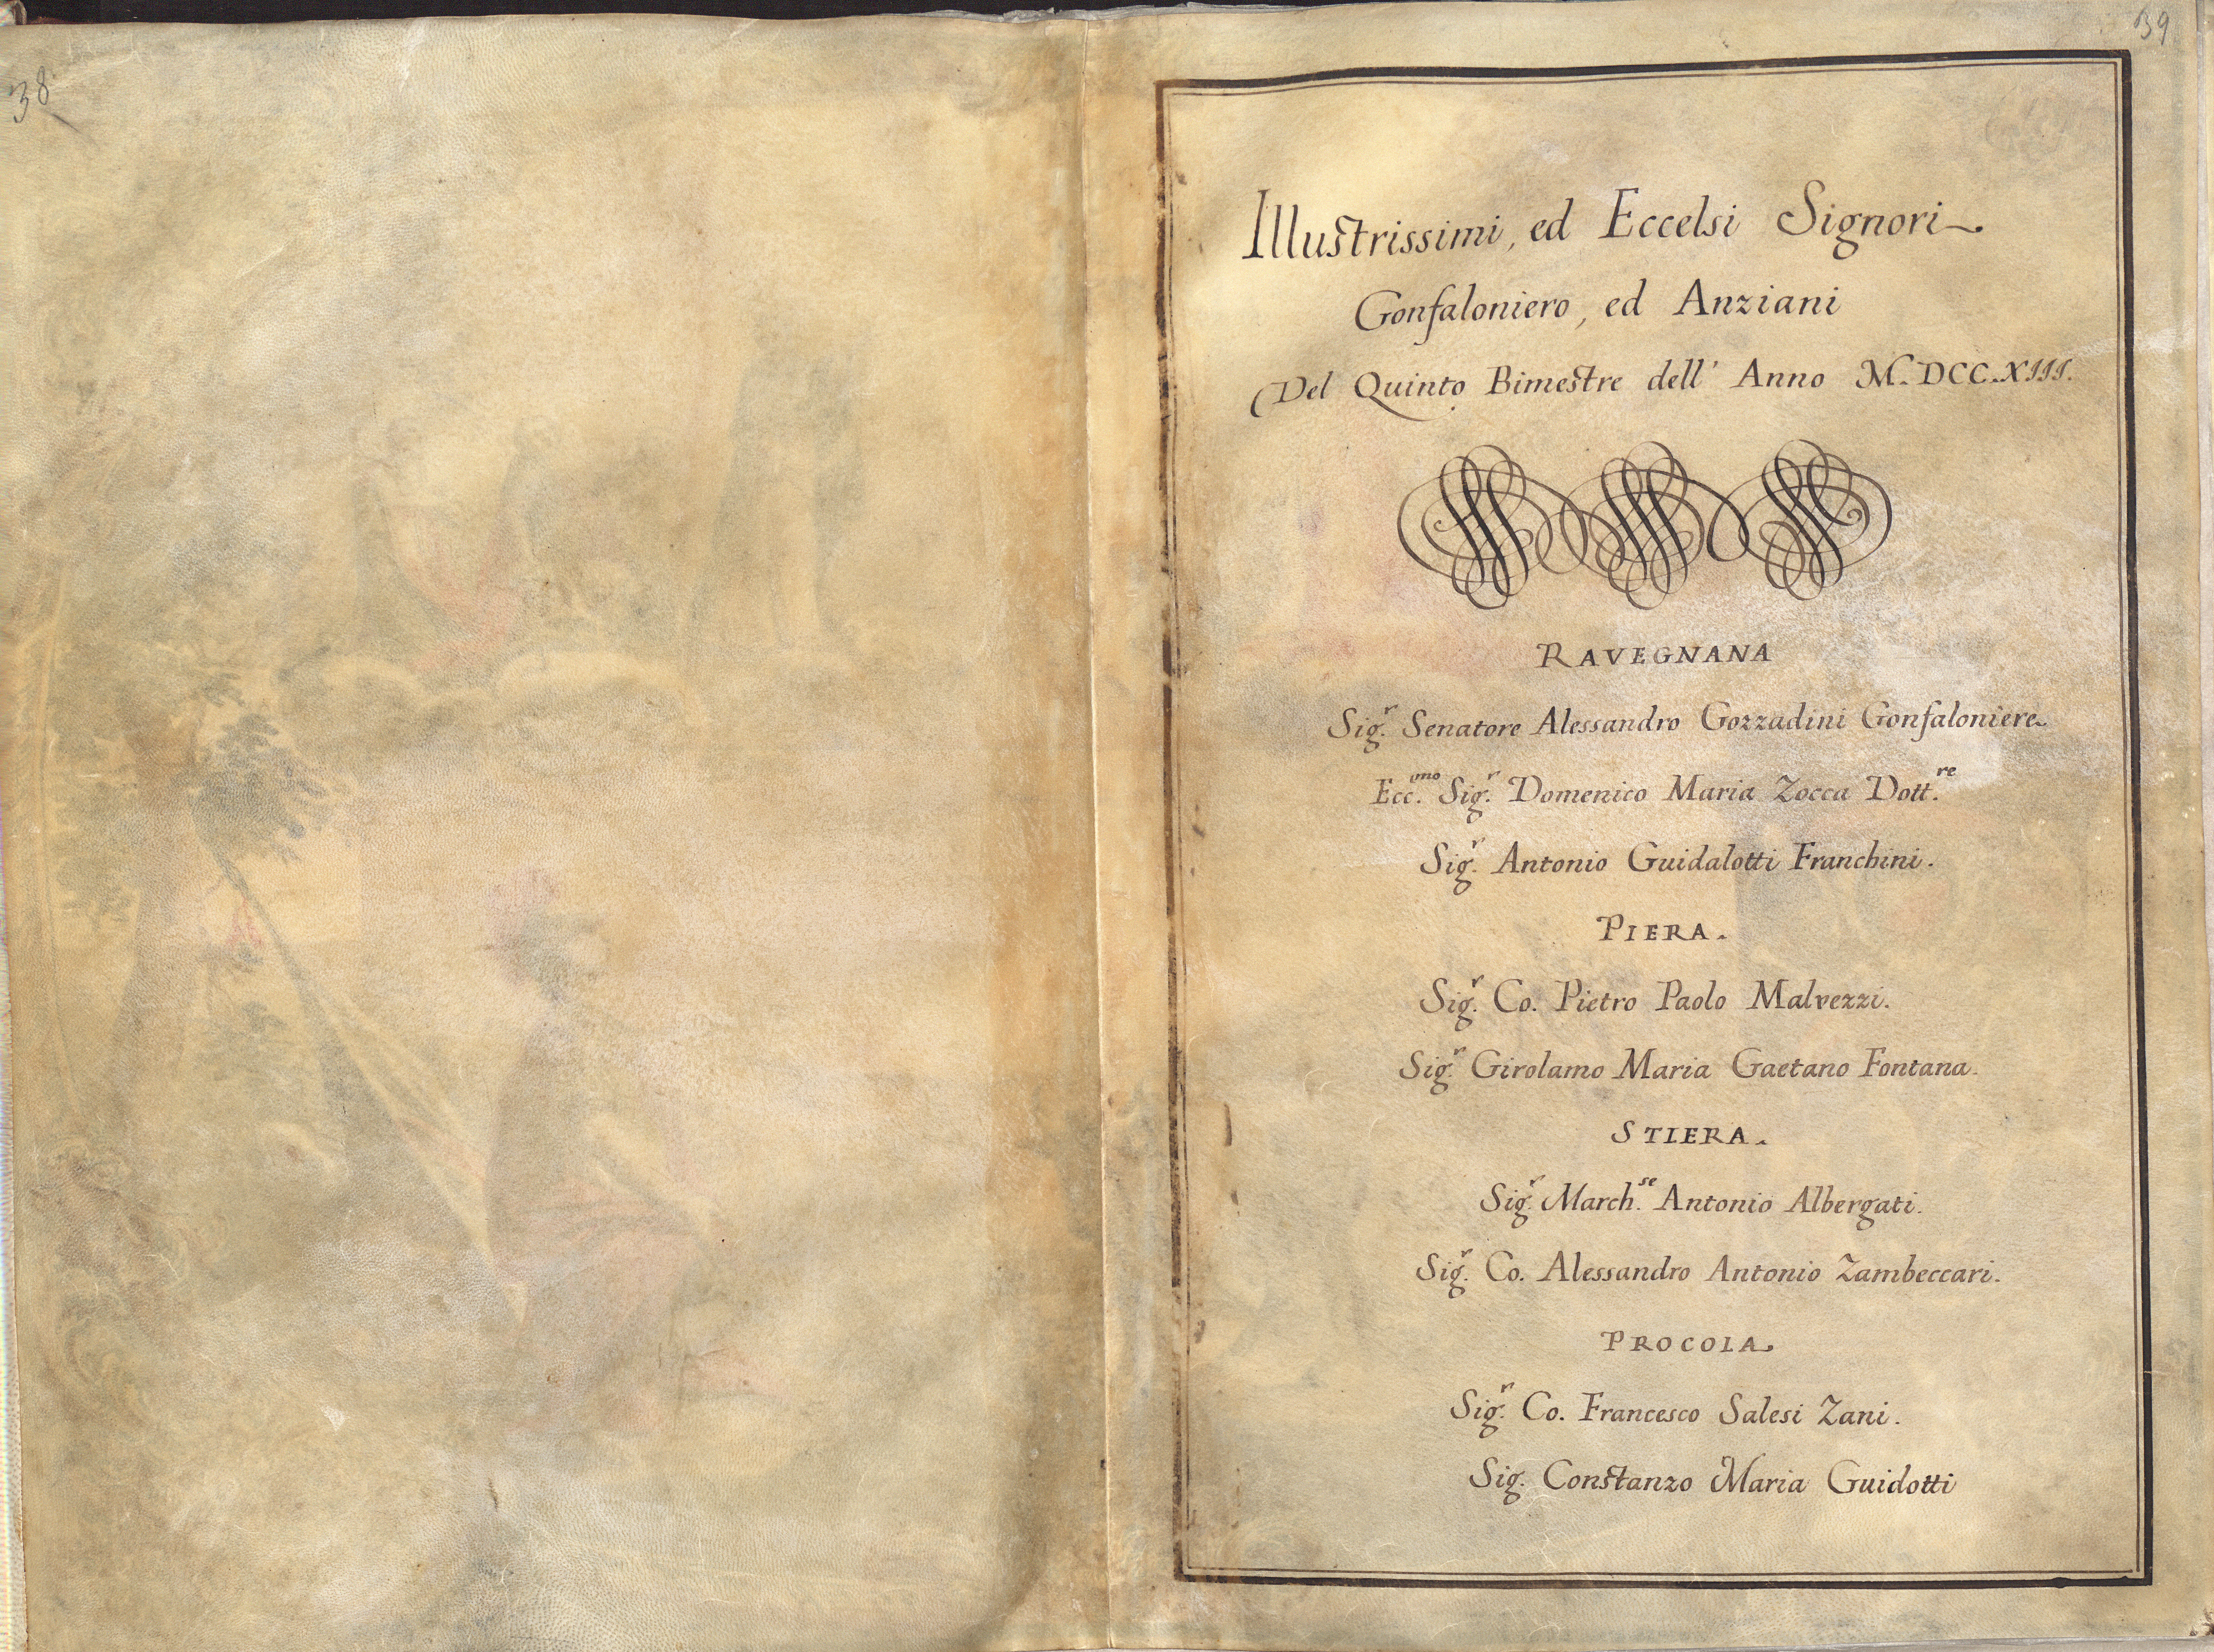 38
39
Illustrissimi, ed Eccelsi Signori
Gonfaloniero, ed Anziani
Del Quinto Bimestre dell' Anno M.DCC.XIII.
RAVEGNANA
Sig.r Senatore Alessandro Gozzadini Gonfaloniere
Ecc.mo Sig.r Domenico Maria Zocca Dott.re
Sig.r Antonio Guidalotti Franchini.
PIERA.
Sig.r Co. Pietro Paolo Malvezzi.
Sig.r Girolamo Maria Gaetano Fontana.
STIERA.
Sig.r March.se Antonio Albergati.
Sig.r Co. Alessandro Antonio Zambeccari.
PROCOLA
Sig.r Co. Francesco Salesi Zani.
Sig. Constanzo Maria Guidotti